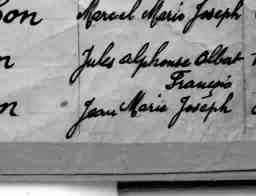 son Marcel Marie Joseph
n Jules Alphonse Albat
François
n Jean Marie Joseph